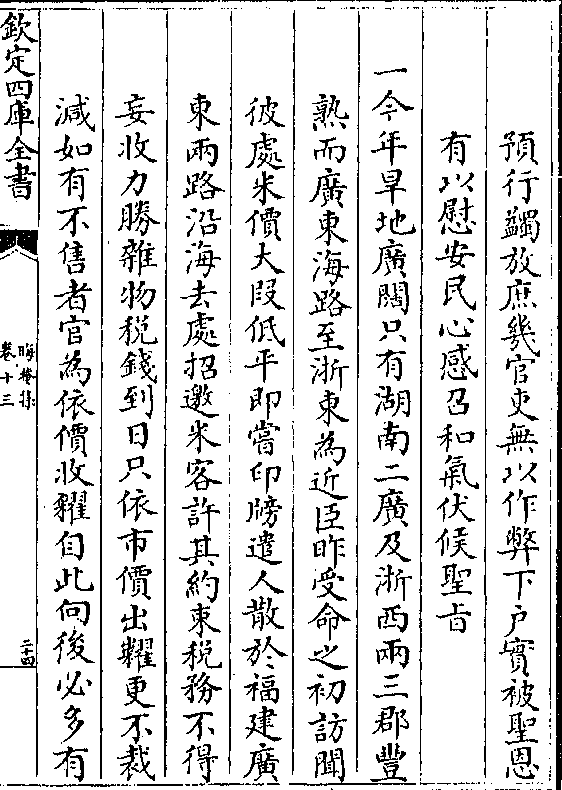 預行蠲放庶幾官吏無以作弊下戶實被聖恩
有以慰安民心感召和氣伏候聖旨
一今年旱地廣闊只有湖南二廣及浙西兩三郡豐
熟而廣東海路至浙東為近臣昨受命之初訪聞
彼處米價大叚低平即嘗印牓遣人散於福建廣
東兩路沿海去處招邀米客許其約束税務不得
妄收力勝雜物税錢到日只依市價出糶更不裁
減如有不售者官為依價收糴自此向後必多有
欽定四庫全書
晦菴集
卷十三
二十四